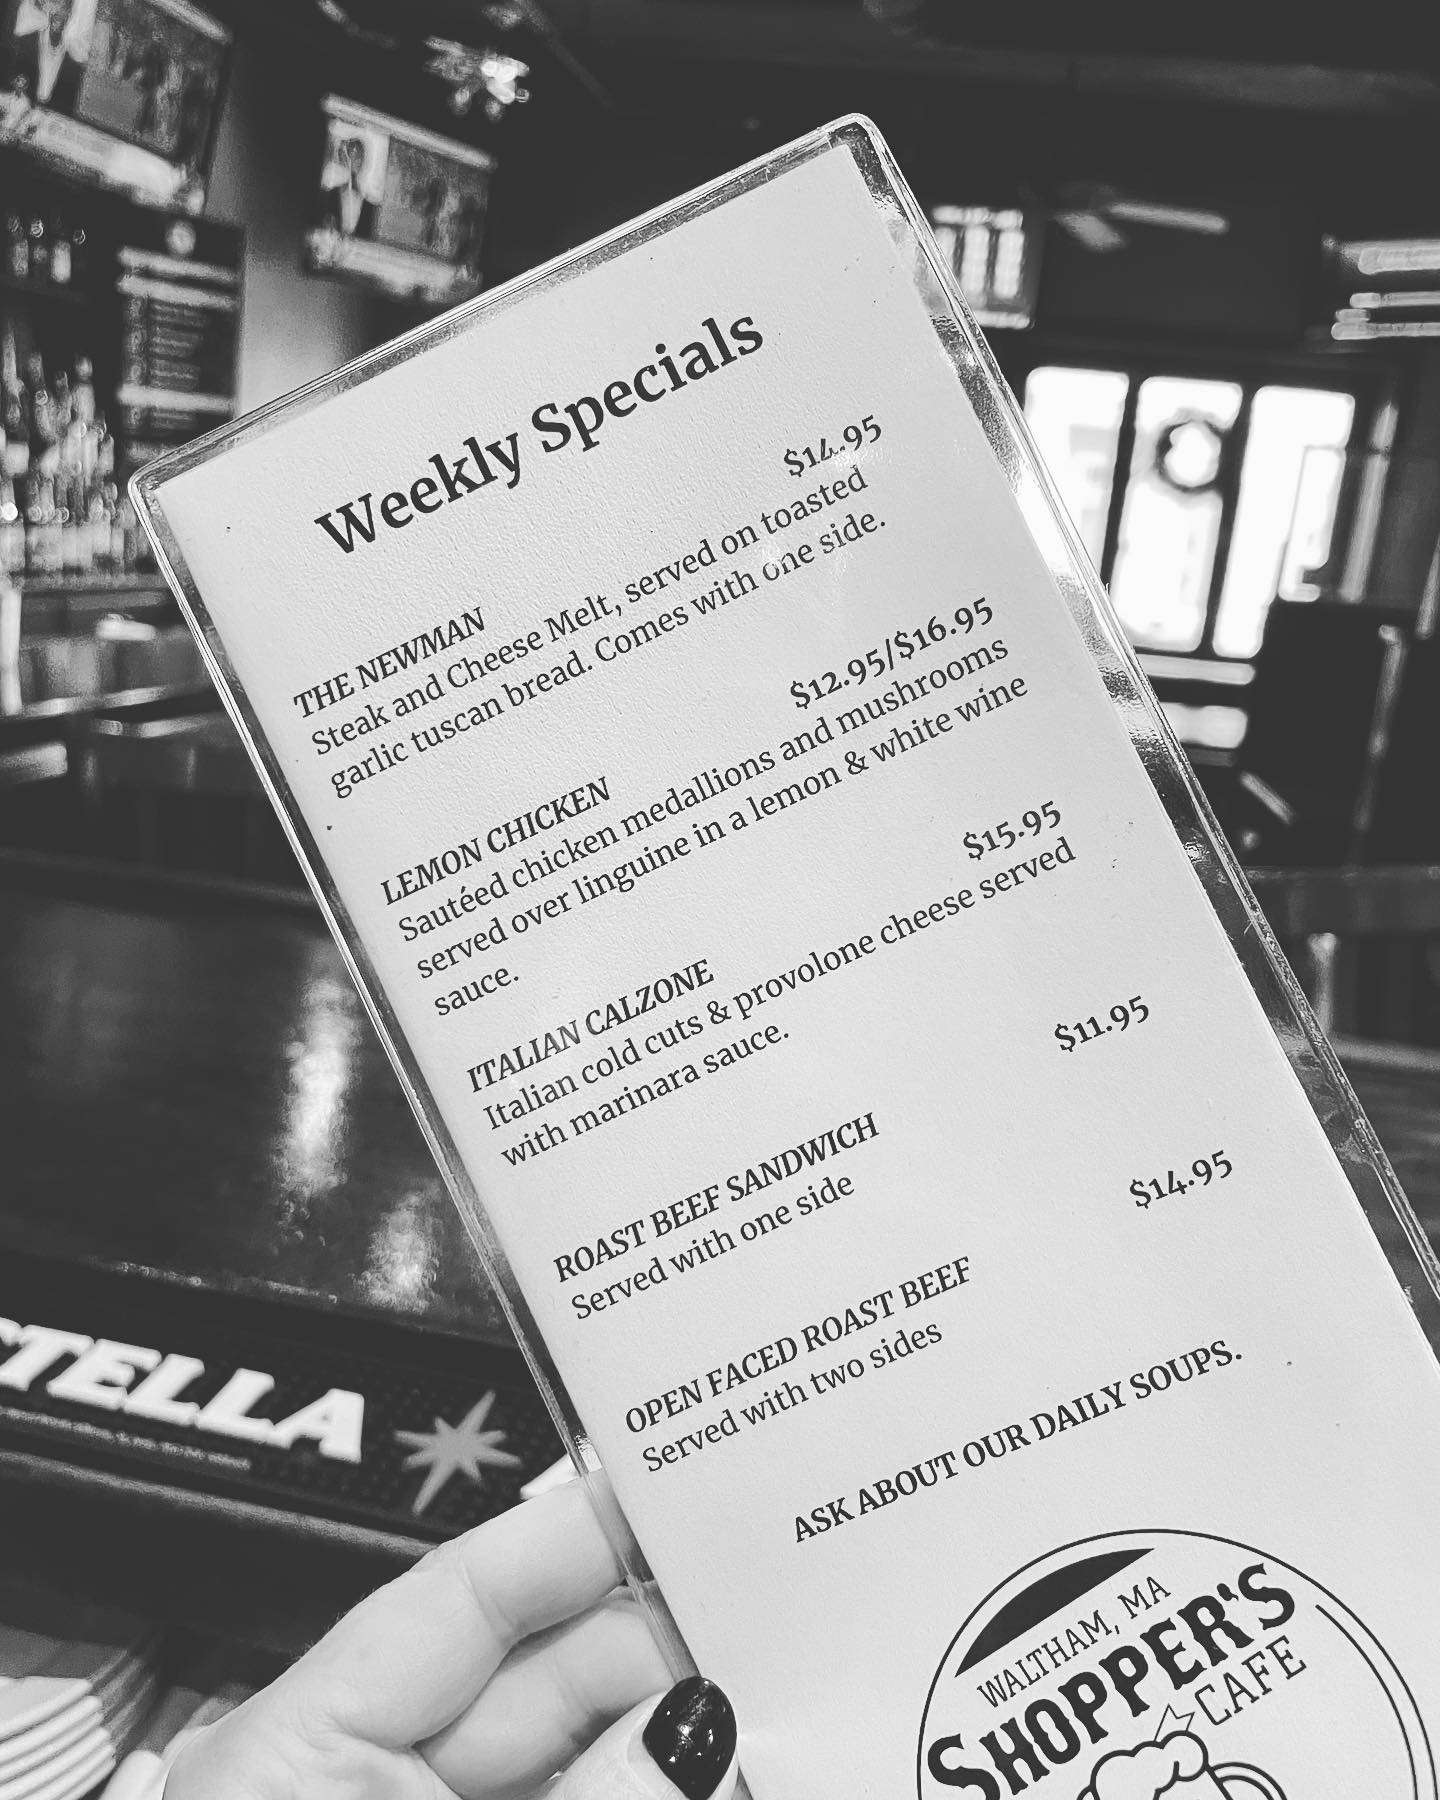 Weekly Specials
THE NEWMAN $14.95
Steak and Cheese Melt, served on toasted
garlic tuscan bread. Comes with one side.
LEMON CHICKEN $12.95/$16.95
Sautéed chicken medallions and mushrooms
served over linguine in a lemon & white wine
sauce.
ITALIAN CALZONE $15.95
Italian cold cuts & provolone cheese served
with marinara sauce.
ROAST BEEF SANDWICH $11.95
Served with one side
OPEN FACED ROAST BEEF $14.95
Served with two sides
ASK ABOUT OUR DAILY SOUPS.
WALTHAM, MA
SHOPPER'S
CAFE
STELLA